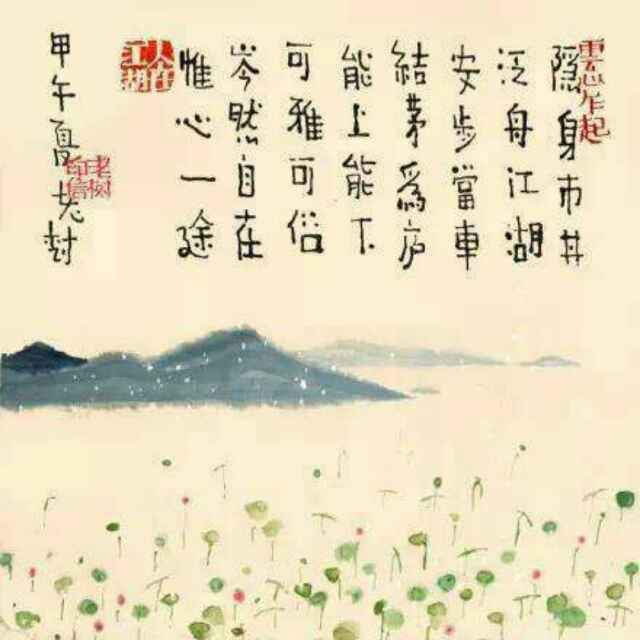 隐身市井
泛舟江湖
安步當車
結茅爲庐
能上能下
可雅可俗
岑然自在
惟心一途
人在江湖
甲午夏老尌
老树印信